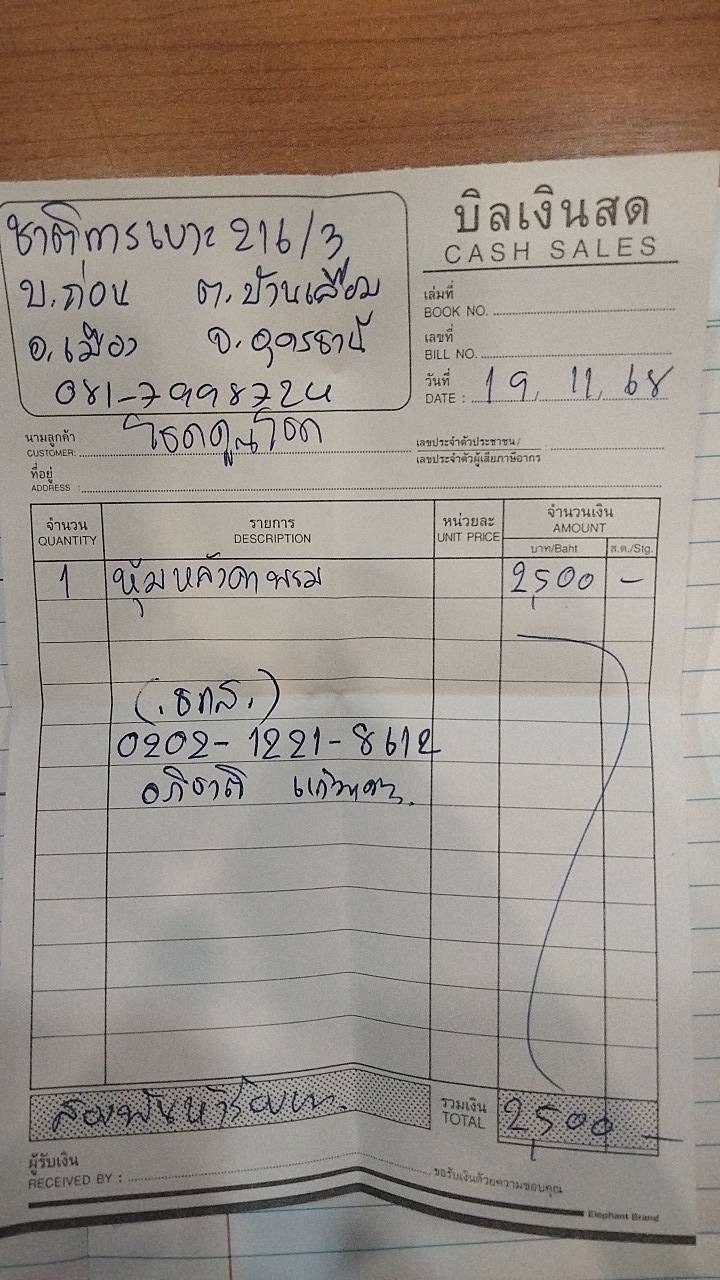 ชาติการเบาะ 216/3
บ.ก่อน ต.บ้านเลื่อม
อ.เมือง จ.อุดรธานี
081-7998724
บิลเงินสด
CASH SALES
เล่มที่
BOOK NO.
เลขที่
BILL NO.
วันที่
DATE : 19, 11, 68
นามลูกค้า
CUSTOMER: โชคคูณโชค
เลขประจำตัวประชาชน/
เลขประจำตัวผู้เสียภาษีอากร :
ที่อยู่
ADDRESS :
จำนวน รายการ หน่วยละ จำนวนเงิน
QUANTITY DESCRIPTION UNIT PRICE AMOUNT
บาท/Baht ส.ต./Stg.
1 หุ้มหลังคา พรม 2,500 -
(.ธกส.)
0202-1221-8612
อภิชาติ
สองพันห้าร้อยบาท. รวมเงิน TOTAL 2,500 -
ผู้รับเงิน
RECEIVED BY :
ขอรับเงินด้วยความขอบคุณ
Elephant Brand